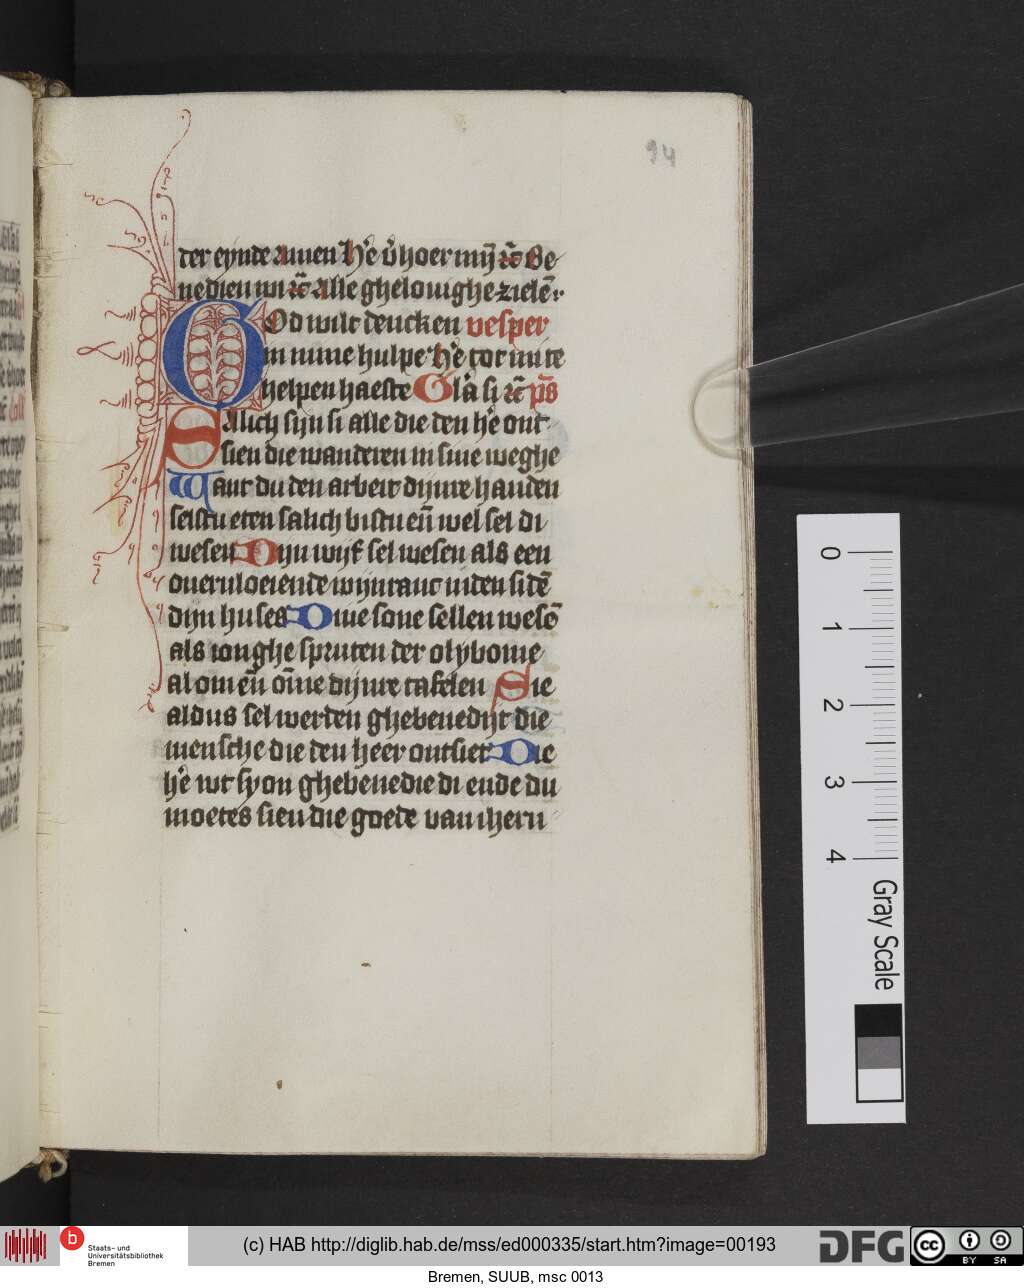 94
der eynde Amen Hʼe v̓hoer mȳ rc̄ Be
nedien wi rc̄ Alle ghelouighe zielē
God wilt dencken vesper
in mine hulpe Hʼe tot mi te
helpen haeste Gl̓a si rc̄ p̄s
Salich sijn si alle die den hʼe ont
sien die wanderen in sine weghe
Want du den arbeit dijnre handen
selstu eten salich bistu eñ wel sel di
wesen Dijn wijf sel wesen als een
overvloeiende wijntant inden sidē
dijn huses Dine sone sellen wesē
als ionghe spruten der olybome
al om eñ ōme dijnre tafelen Sie
aldus sel werden ghebenedijt die
mensche die den heer ontsiet Die
hʼe wt syon ghebenedie di ende du
moetes sien die goede van ihern
0
1
2
3
4
Gray Scale
b
Staats- und
Universitätsbibliothek
Bremen
(c) HAB http://diglib.hab.de/mss/ed000335/start.htm?image=00193
DFG
cc
BY SA
Bremen, SUUB, msc 0013